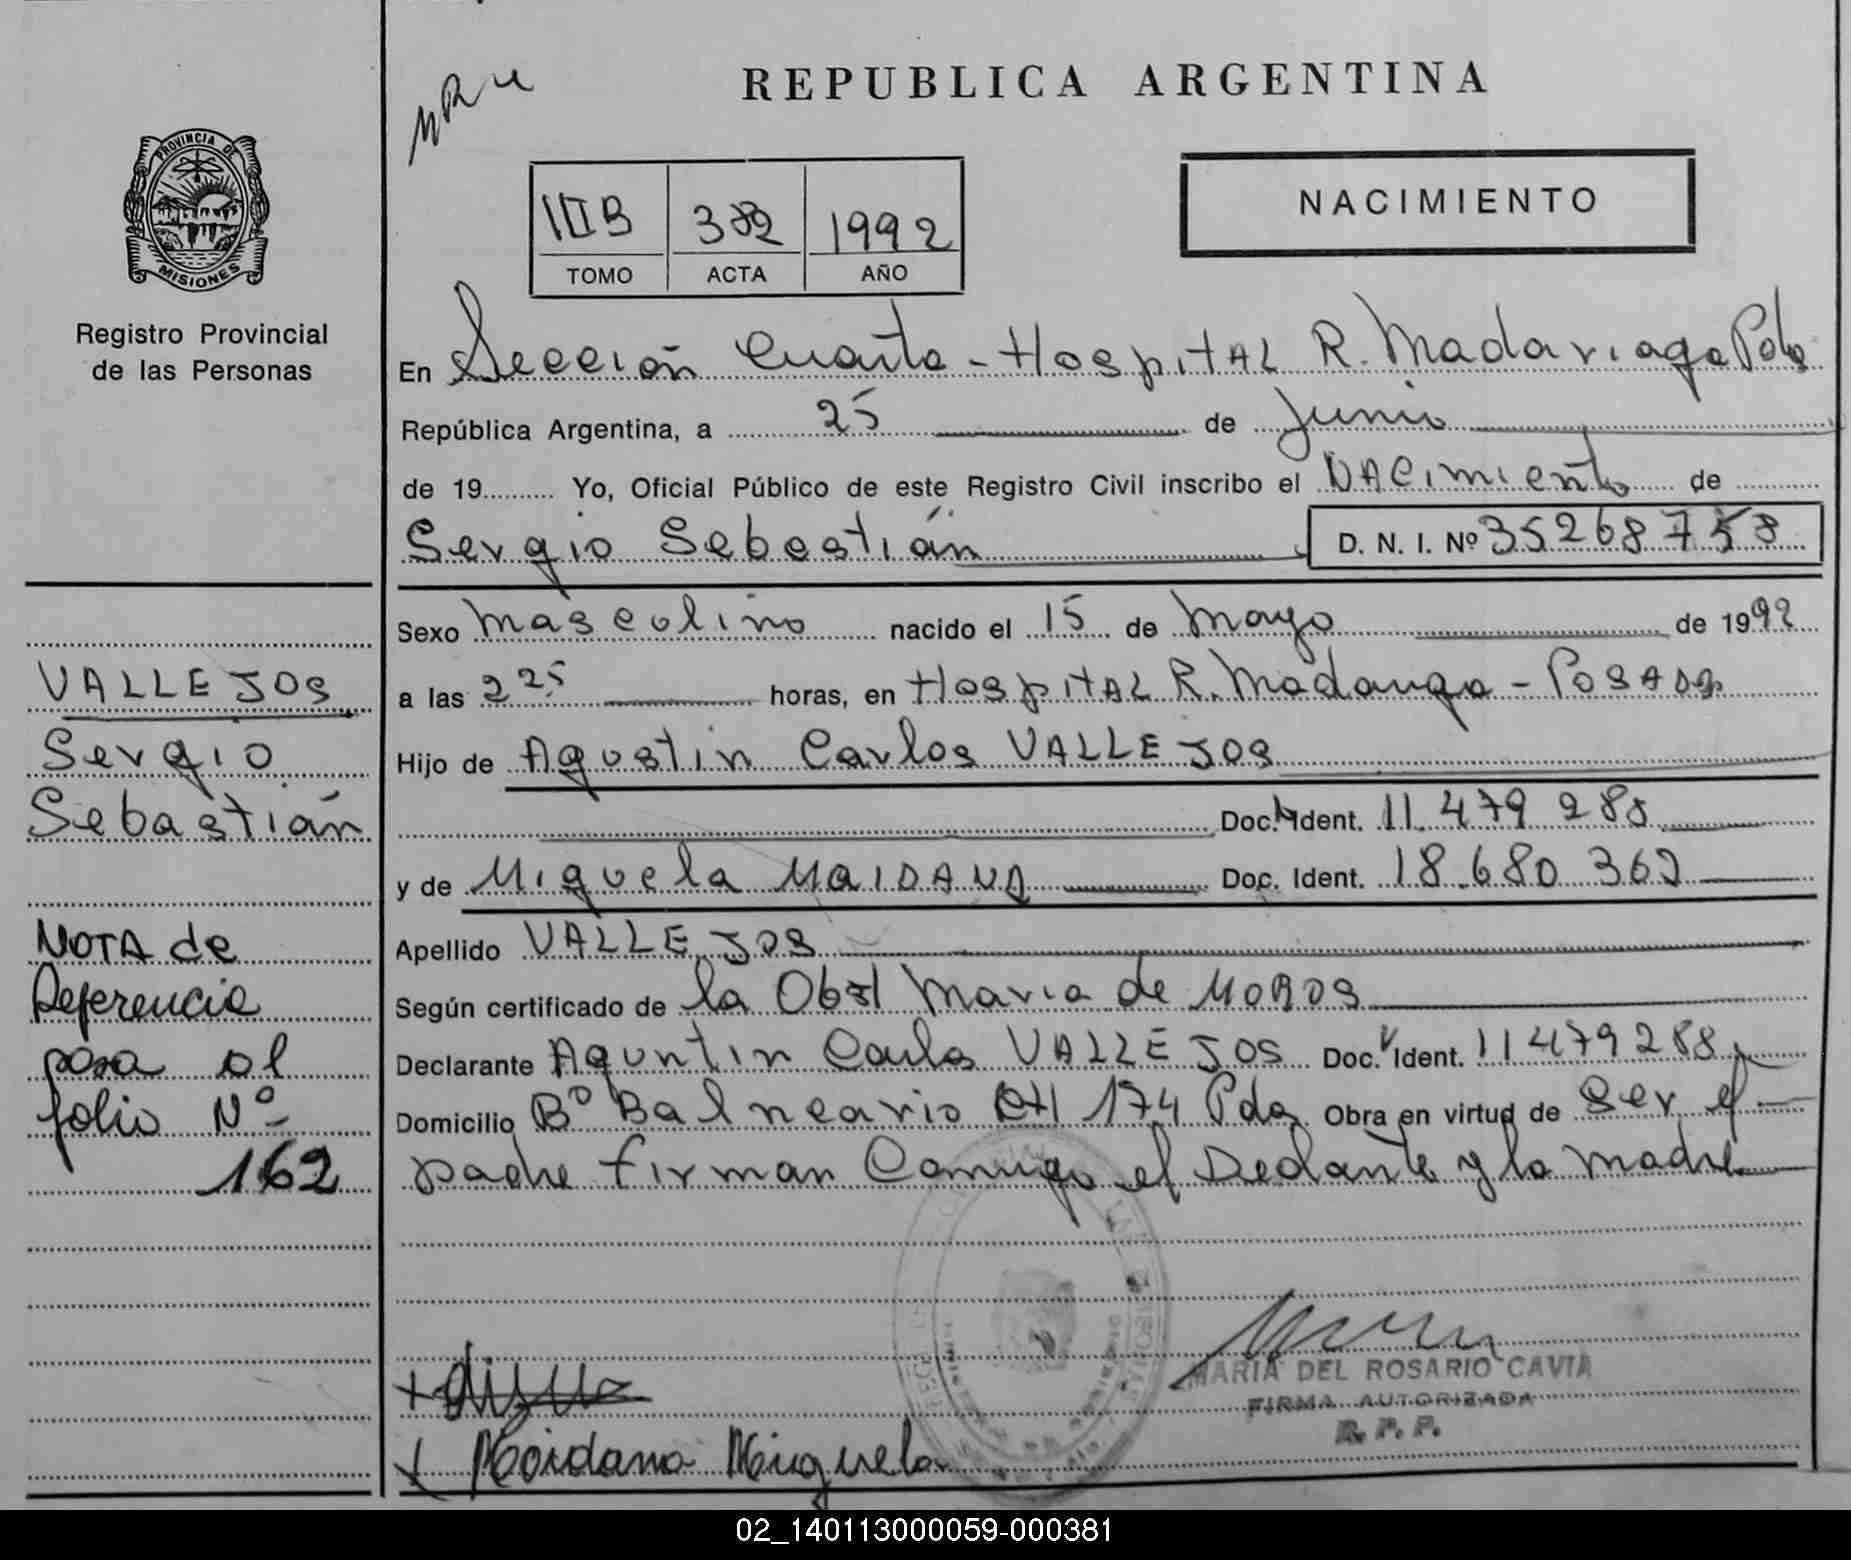 REPUBLICA ARGENTINA
NACIMIENTO
PROVINCIA DE
MISIONES
Registro Provincial
de las Personas
IIIB 382 1992
TOMO ACTA AÑO
En Sección Cuarta - Hospital R. Madariaga Pdas
República Argentina, a 25 de Junio
de 19 Yo, Oficial Público de este Registro Civil inscribo el Nacimiento de
Sergio Sebastián D. N. I. Nº 35268758
Sexo Masculino nacido el 15 de Mayo de 1992
a las 2 25 horas, en Hospital R. Madariaga - Posadas
Hijo de Agustin Carlos VALLEJOS
Doc. Ident. 11.479 288
y de Miguela MAIDANA Doc. Ident. 18.680 362
Apellido VALLEJOS
Según certificado de la Obst Maria de
Declarante Agustin Carlos VALLEJOS Doc. Ident. 11479288
Domicilio Bº Balneario 174 Pdas Obra en virtud de ser el
padre firman Conmigo el Declarante y la madre
VALLEJOS
Sergio
Sebastián
NOTA de
Referencia
pasa al
folio Nº
162
MARIA DEL ROSARIO CAVIA
FIRMA AUTORIZADA
R. P. P.
Maidana Miguela
02_140113000059-000381